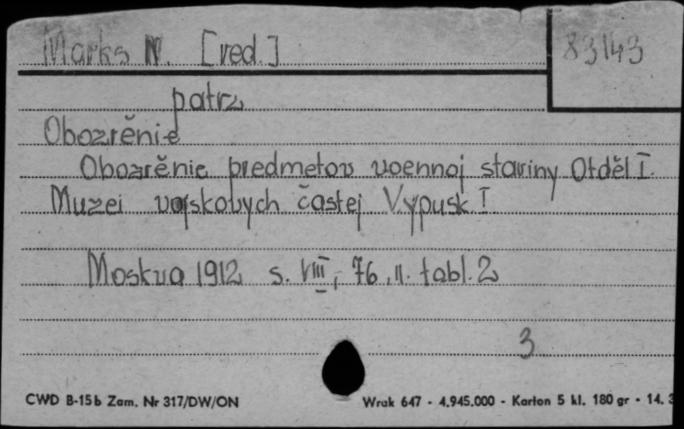 Marks N. [red.]
83143
patrz
Obozrěnie
Obozrěnie predmetov voennoj stariny Otděl I.
Muzei vojskovych častej Vypusk I
Moskva 1912 s. VIII, 76, il. tabl. 2
3
CWD B-15b Zam. Nr 317/DW/ON
Wrak 647 - 4.945.000 - Karton 5 kl. 180 gr - 14. 3